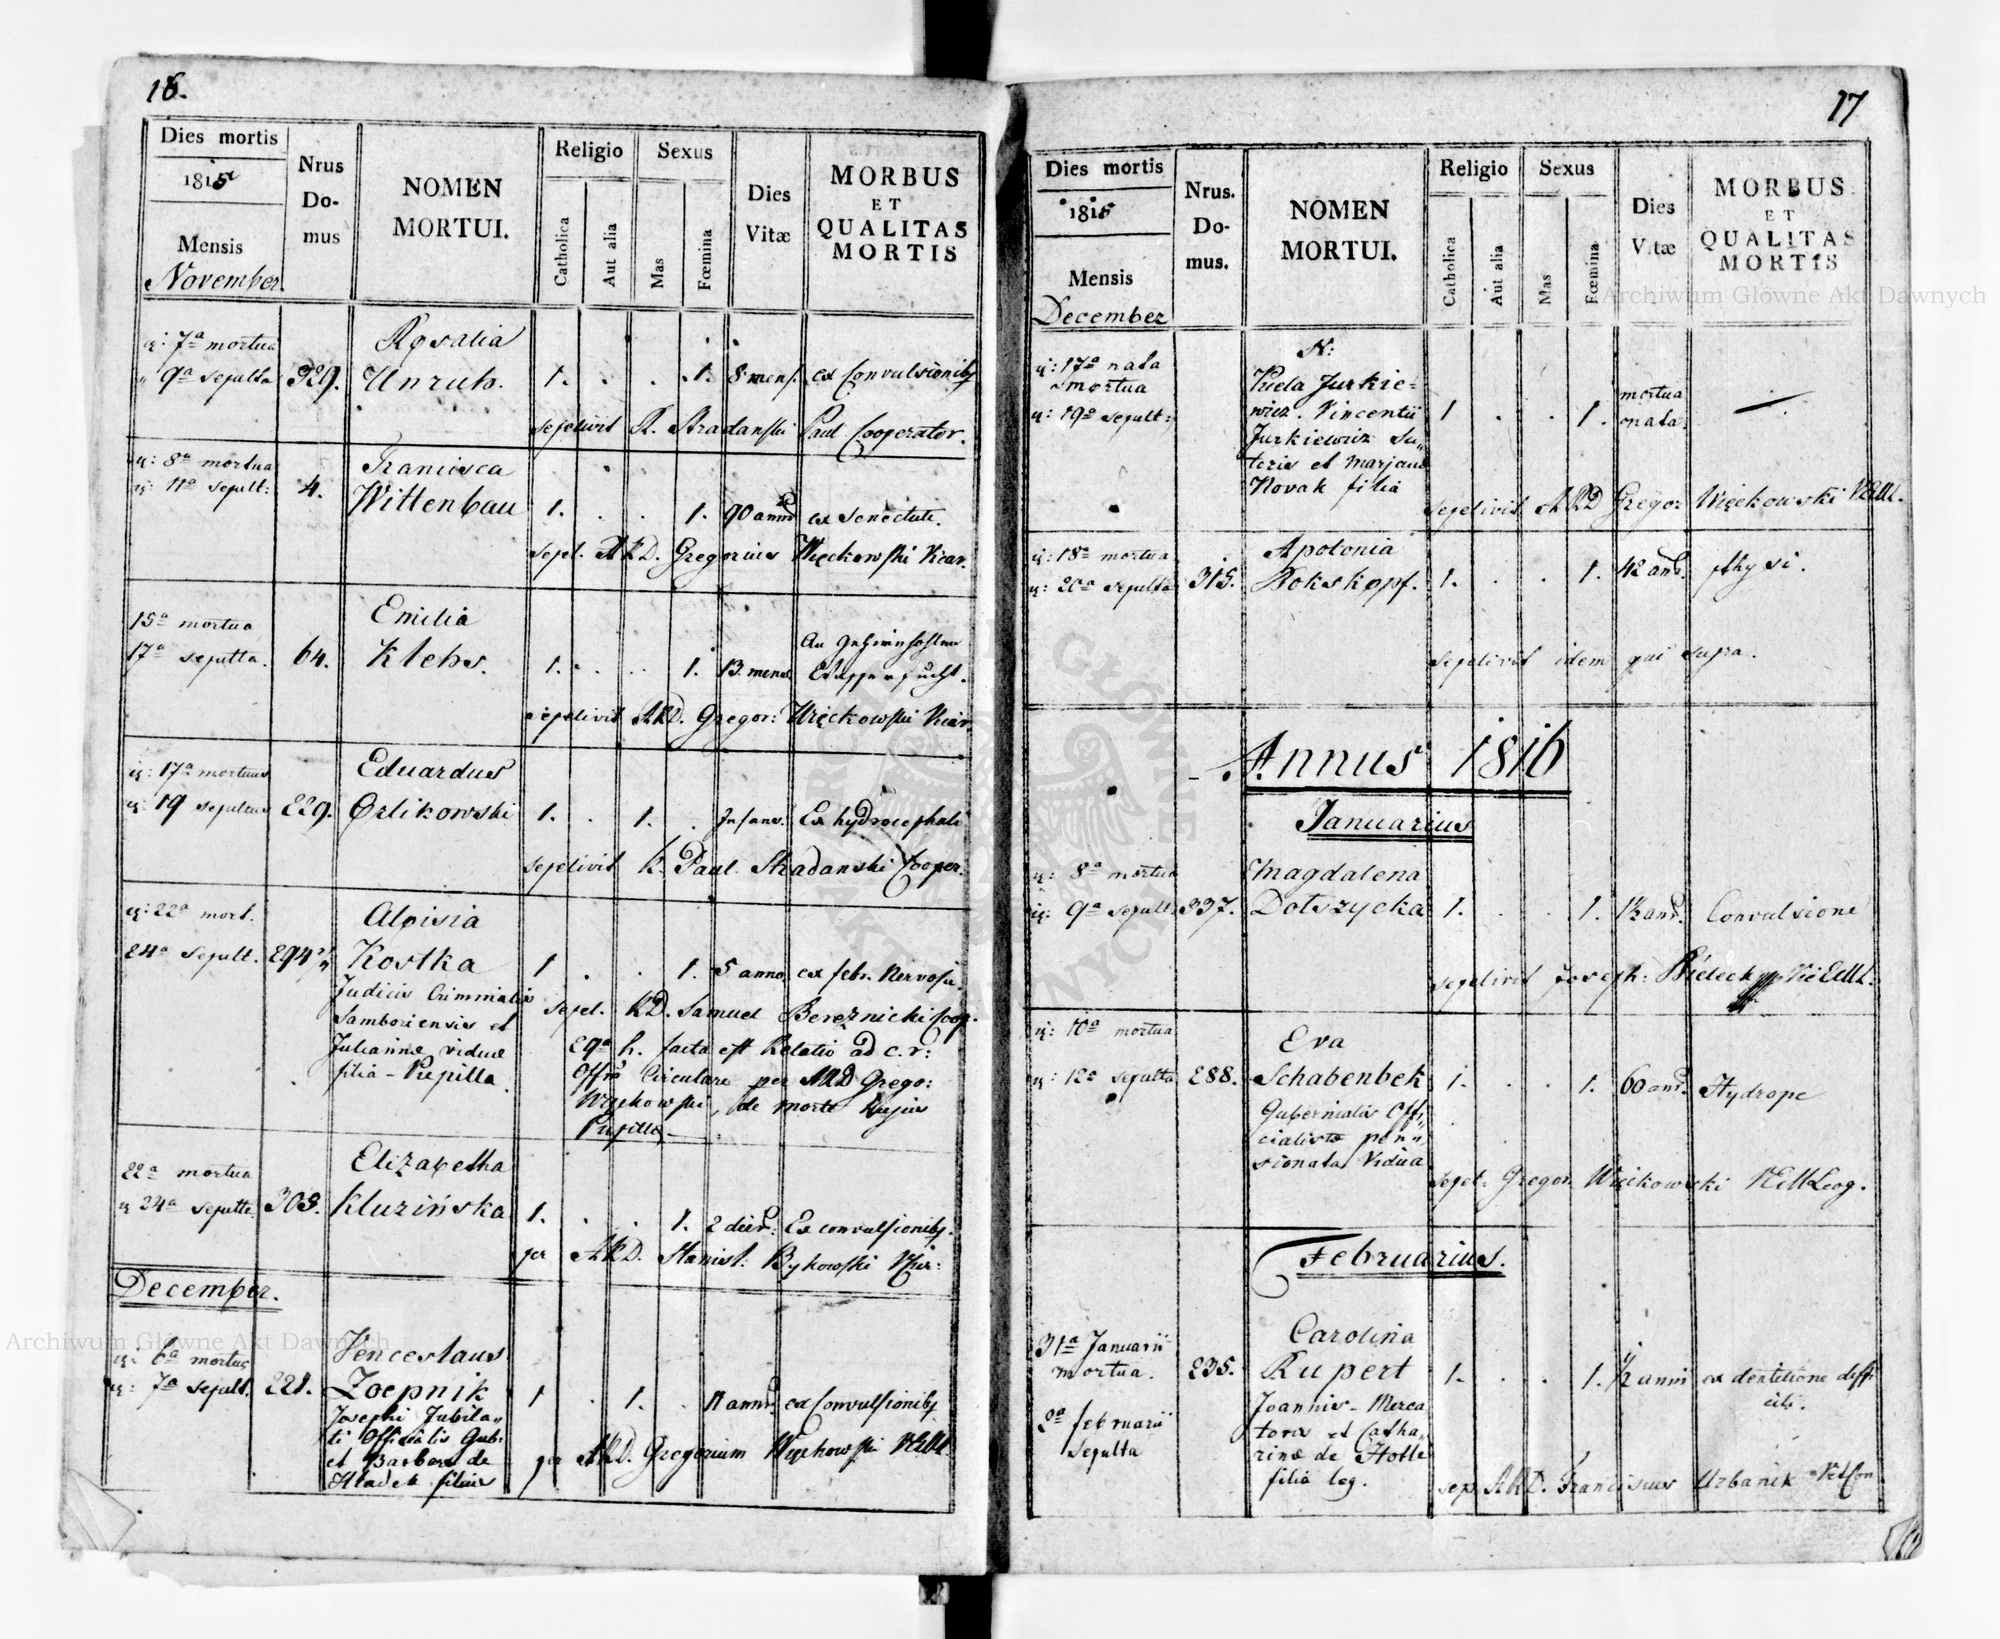 16.
Dies mortis
1815
Mensis
November.
Nrus
Do-
mus
NOMEN
MORTUI.
Religio
Catholica
Aut alia
Sexus
Mas
Fœmina
Dies
Vitæ
MORBUS
ET
QUALITAS
MORTIS
7ª mortua
9ª sepulta
329.
Rosalia
Unruh.
1. . . 1. 8 mens. ex Convulsionib9
sepelivit R. Stradanski Paul Cooperator.
8ª mortua
11ª sepult:
4.
Francisca
Wittenbau
1. . . 1. 90 anno ex senectute.
sepel. ARD. Gregorius Więckowski Vicar.
15ª mortua
17ª sepulta.
64.
Emilia
Klebs.
1. . . 1. 13. mens.
sepelivit ARD. Gregor: Więckowski Vicar.
17ª mortuus
19 sepultus
229.
Eduardus
Orlikowski
1. . 1. . Infans. Ex hydrocephali
sepelivit R. Paul Stradanski Cooper.
22ª mort.
24ª sepult.
294
Aloisia
Kostka
Judicis Criminalis
Samboriensis et
Julianne vidue
filia - Pupilla.
1 . . 1. 5 anno. ex febr. Nervosa.
sepel. RD. Samuel Bereznicki Coop.
29ª h. facta est Relatio ad c. r:
Offm Circulare per ARD Grego:
Więckowski, de morte hujus
Pupillæ
22ª mortua
24ª sepulta.
303.
Elizabetha
Kluzińska
1. . . 1. 2 dier: Ex convulsionib9.
per ARD. Stanisl: Bykowski Vicar:
December.
6ª mortus
7ª sepult.
221.
Venceslaus
Zoepnik
Josephi Jubila-
ti Officialis Gub:
et Barbare de
Hladek filius
1 . 1. . 11 anno. ex Convulsionib9
per ARD. Gregorium Więckowski
17
Dies mortis
1815
Mensis
December
Nrus.
Do-
mus.
NOMEN
MORTUI.
Religio
Catholica
Aut alia
Sexus
Mas
Fœmina
Dies
Vitæ
MORBUS
ET
QUALITAS
MORTIS
17ª nata
mortua
19ª sepult:
N:
Puela Jurkie=
wicz. Vincentii
Jurkiewicz Su„
toris et Marjane
Novak filia
1 . . 1. mortua
nata.
sepelivit ARD Gregor Więckowski
18ª mortua
20ª sepulta
315.
Apolonia
Bokskopf.
1. . . 1. 42 ann. pthysi.
sepelivit idem qui supra.
Annus 1816
Januarius
8ª mortua
9ª sepult.
337.
Magdalena
Dotszycka
1. . . 1. 1½ ann. Convulsione
sepelivit Joseph:
10ª mortua
12ª sepulta
288.
Eva
Schabenbek
Gubernialis Offi„
cialistæ pen„
sionata Vidua
1. . . 1. 60 ann. Hydrope
sepel: Gregor. Więckowski
Februarius.
31ª Januarii
mortua.
2ª februarii
sepulta
235.
Carolina
Rupert
Joannis - Merca
toris et Catha„
rine de Hotte
filia leg.
1. . . 1. ½ anni ex dentitione diffi
cili.
sep. ARD. Franciscus Urbanik
Archiwum Główne Akt Dawnych
Archiwum Główne Akt Dawnych
ARCHIWUM GŁÓWNE AKT DAWNYCH